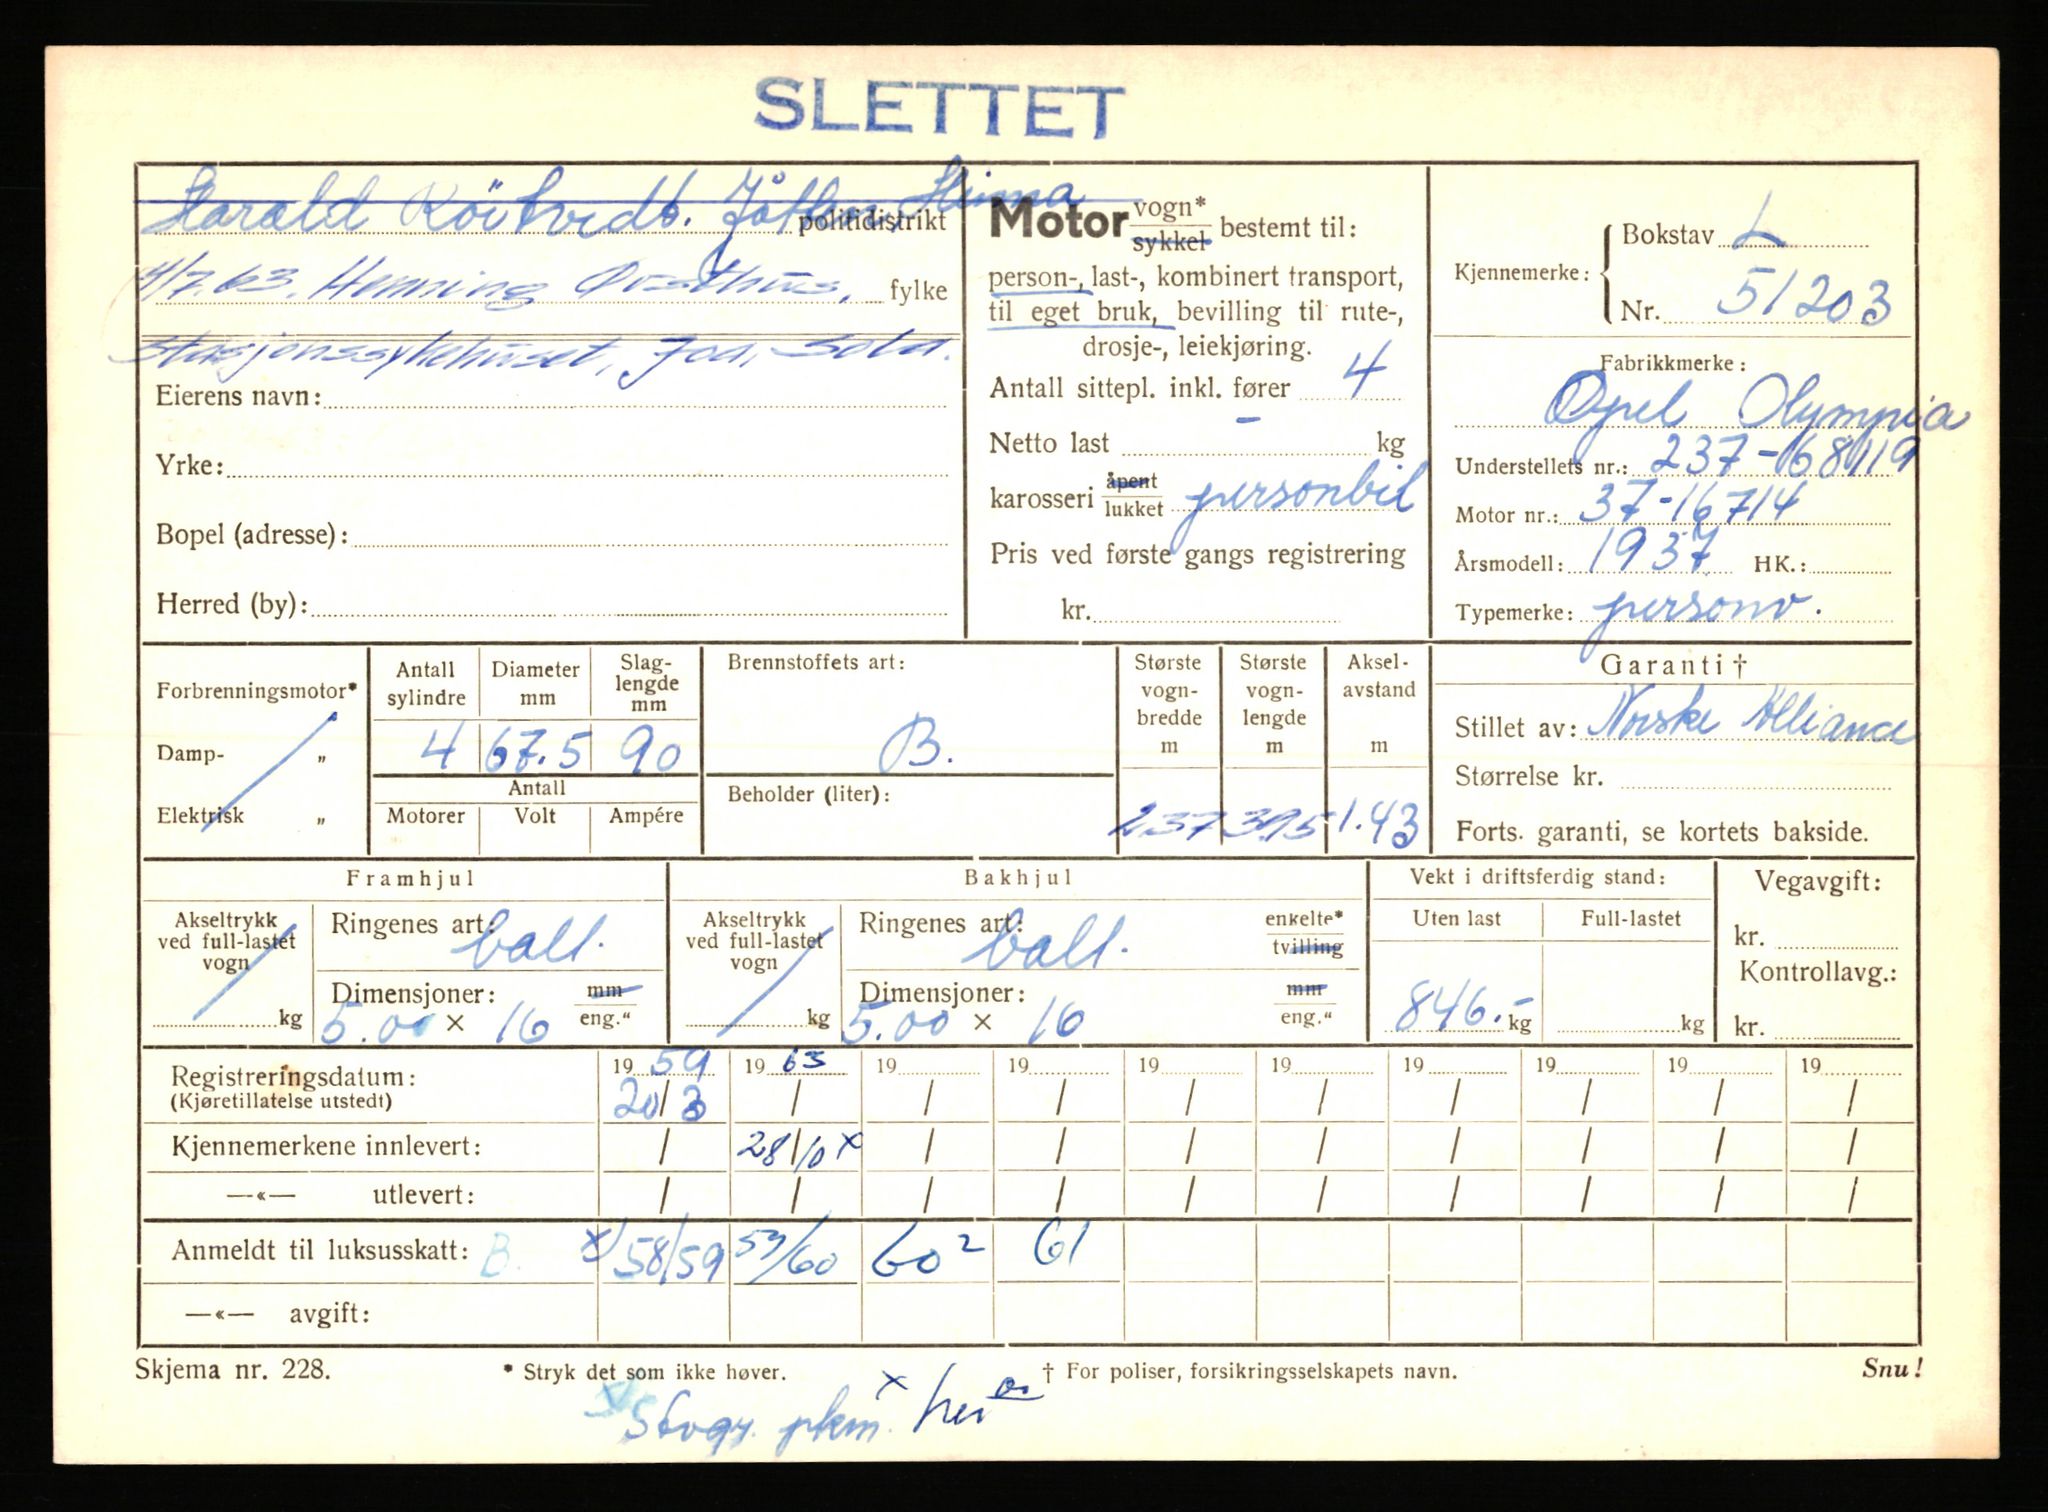 SLETTET
Harald politidistrikt
4/7.63. Henning fylke
stasjonssykehuset, Joa, Sola.
Eierens navn:
Yrke:
Bopel (adresse):
Herred (by):
Motor vogn* sykkel bestemt til:
person-, last-, kombinert transport,
til eget bruk, bevilling til rute-,
drosje-, leiekjøring.
Antall sittepl. inkl. fører 4
Netto last - kg
karosseri åpent lukket personbil
Pris ved første gangs registrering
kr.
Kjennemerke: Bokstav L
Nr. 51203
Fabrikkmerke:
Opel Olympia
Understellets nr.: 237-68119
Motor nr.: 37-16714
Årsmodell: 1937 HK.:
Typemerke: personv.
Forbrenningsmotor*
Damp- „
Elektrisk „
Antall sylindre Diameter mm Slaglengde mm
4 67.5 90
Antall
Motorer Volt Ampére
Brennstoffets art:
B.
Beholder (liter):
Største vognbredde m Største vognlengde m Akselavstand m
237 395 1.43
Garanti †
Stillet av: Norske Alliance
Størrelse kr.
Forts. garanti, se kortets bakside.
Framhjul
Akseltrykk ved full-lastet vogn kg
Ringenes art: ball.
Dimensjoner: mm eng."
5.00 × 16
Bakhjul
Akseltrykk ved full-lastet vogn kg
Ringenes art: ball. enkelte* tvilling
Dimensjoner: mm eng."
5.00 × 16
Vekt i driftsferdig stand:
Uten last Full-lastet
846.- kg kg
Vegavgift:
kr.
Kontrollavg.:
kr.
Registreringsdatum: 19 59 19 63 19 19 19 19 19 19 19 19
(Kjøretillatelse utstedt) 20/3 / / / / / / / / /
Kjennemerkene innlevert: / 28/10 x / / / / / / / /
—«— utlevert: / / / / / / / / / /
Anmeldt til luksusskatt: B. x/58/59 59/60 60² 61
—«— avgift:
Skjema nr. 228. * Stryk det som ikke høver. † For poliser, forsikringsselskapets navn. Snu!
x